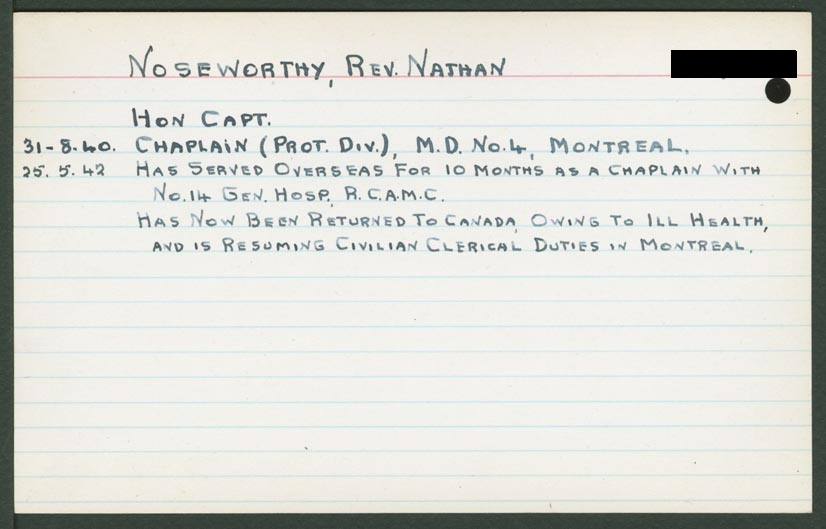 NOSEWORTHY, REV. NATHAN
HON CAPT.
31-8-40. CHAPLAIN (PROT. DIV.), M.D. NO.4, MONTREAL.
25.5.42 HAS SERVED OVERSEAS FOR 10 MONTHS AS A CHAPLAIN WITH
NO.14 GEN. HOSP. R.C.A.M.C.
HAS NOW BEEN RETURNED TO CANADA, OWING TO ILL HEALTH,
AND IS RESUMING CIVILIAN CLERICAL DUTIES IN MONTREAL.